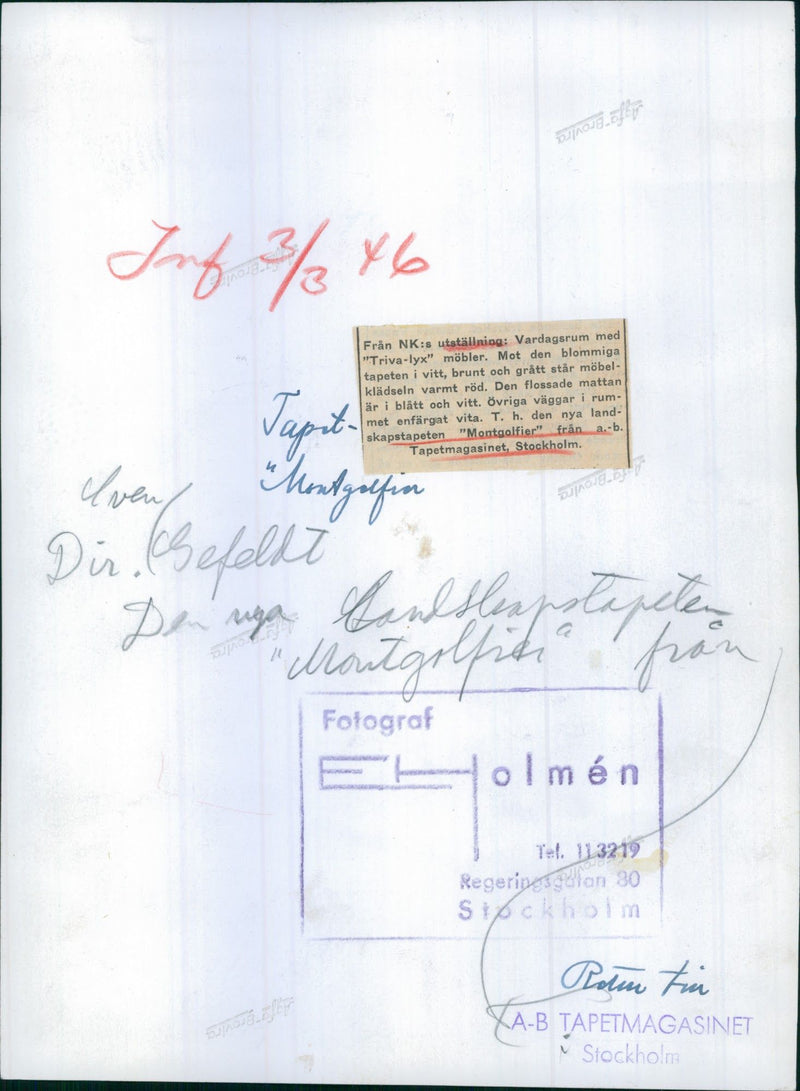 Agfa-Brovira
Inf 3/3 46
Agfa-Brovira
Från NK:s utställning: Vardagsrum med
"Triva-lyx" möbler. Mot den blommiga
tapeten i vitt, brunt och grått står möbel-
klädseln varmt röd. Den flossade mattan
är i blått och vitt. Övriga väggar i rum-
met enfärgat vita. T. h. den nya land-
skapstapeten "Montgolfier" från a.-b.
Tapetmagasinet, Stockholm.
Tapet-
"Montgolfier
Agfa-Brovira
Även
Dir. Gefeldt
Den nya Landskapstapeten
"Montgolfier" från
Agfa-Brovira
Fotograf
EHolmén
Tel. 113219
Regeringsgatan 80
Stockholm
Agfa-Brovira
Retur till
A-B TAPETMAGASINET
i Stockholm
Agfa-Brovira